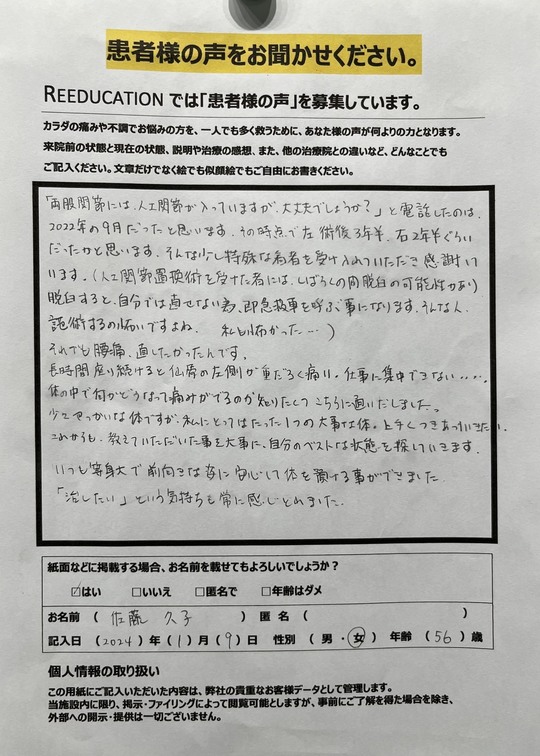 患者様の声をお聞かせください。
REEDUCATION では「患者様の声」を募集しています。
カラダの痛みや不調でお悩みの方を、一人でも多く救うために、あなた様の声が何よりの力となります。
来院前の状態と現在の状態、説明や治療の感想、また、他の治療院との違いなど、どんなことでも
ご記入ください。文章だけでなく絵でも似顔絵でもご自由にお書きください。
「両股関節には、人工関節が入っていますが、大丈夫でしょうか？」と電話したのは、
2022年の9月だったと思います。その時点で左術後3年半、右2年半ぐらい
だったかと思います。そんな少し特殊な患者を受け入れていただき感謝してい
ます。(人工関節置換術を受けた者には、しばらくの間脱臼の可能性があり
脱臼すると、自分では直せない為、即救急車を呼ぶ事になります。そんな人、
施術するの怖いですよね。 私も怖かった…)
それでも腰痛、直したかったんです。
長時間座り続けると仙骨の左側が重だるく痛い。仕事に集中できない……。
体の中で何がどうなって痛みがでるのか知りたくて こちらに通いだしました。
少々やっかいな体ですが、私にとってはたった1つの大事な体。上手くつきあっていきたい。
これからも、教えていただいた事を大事に、自分のベストな状態を探していきます。
いつも等身大で前向きな姿に安心して体を預ける事ができました。
「治したい」という気持ちも常に感じとれました。
紙面などに掲載する場合、お名前を載せてもよろしいでしょうか？
☑はい □いいえ □匿名で □年齢はダメ
お名前 ( 佐藤 久子 ) 匿名 ( )
記入日 (2024) 年 (1) 月 (9) 日 性別 ( 男 ・ 女 ) 年齢 ( 56 ) 歳
個人情報の取り扱い
この用紙にご記入いただいた内容は、弊社の貴重なお客様データとして管理します。
当施設内に限り、掲示・ファイリングによって閲覧可能としますが、事前にご了解を得た場合を除き、
外部への開示・提供は一切ございません。